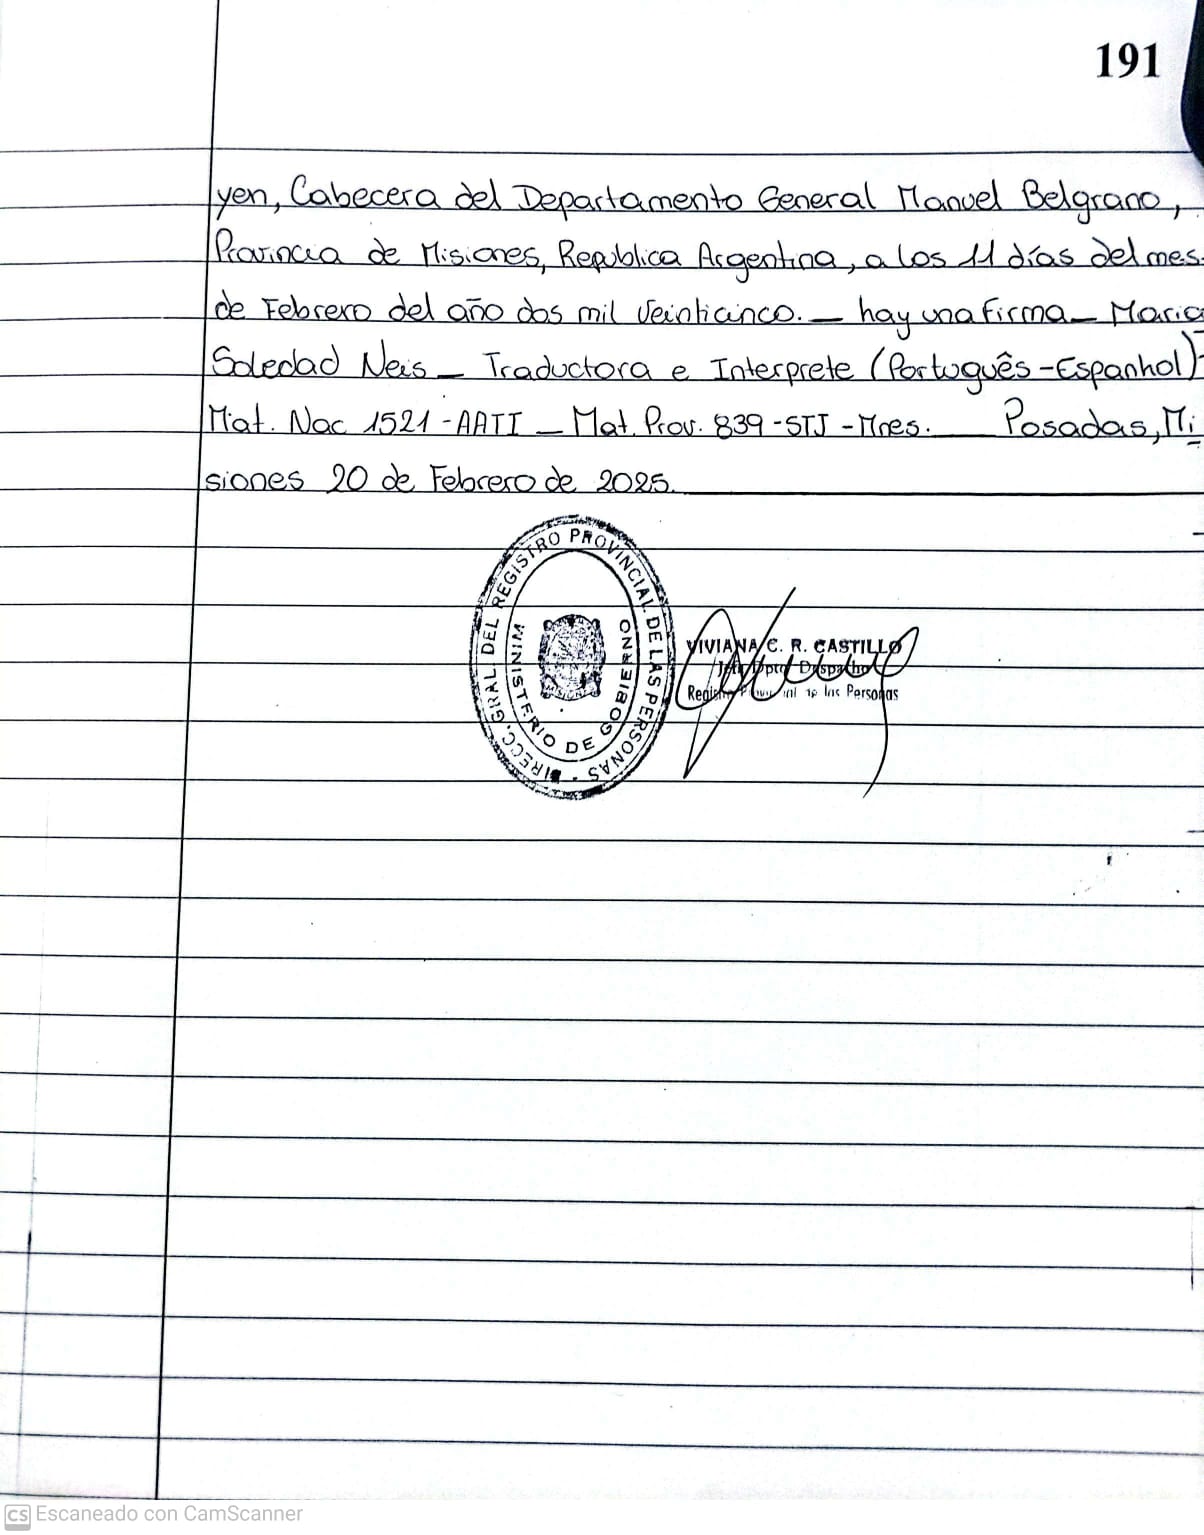 191
yen, Cabecera del Departamento General Manuel Belgrano,
Provincia de Misiones, Republica Argentina, a los 11 días del mes
de Febrero del año dos mil veinticinco. — hay una firma — Maria
Soledad Neis — Traductora e Interprete (Português-Espanhol)-
Mat. Nac 1521-AATI — Mat. Prov. 839-STJ-Mnes. — Posadas, Mi
siones 20 de Febrero de 2025.
DIRECC. GRAL. DEL REGISTRO PROVINCIAL DE LAS PERSONAS -
MINISTERIO DE GOBIERNO
VIVIANA C. R. CASTILLO
Dpto Despacho
de las Personas
CS Escaneado con CamScanner